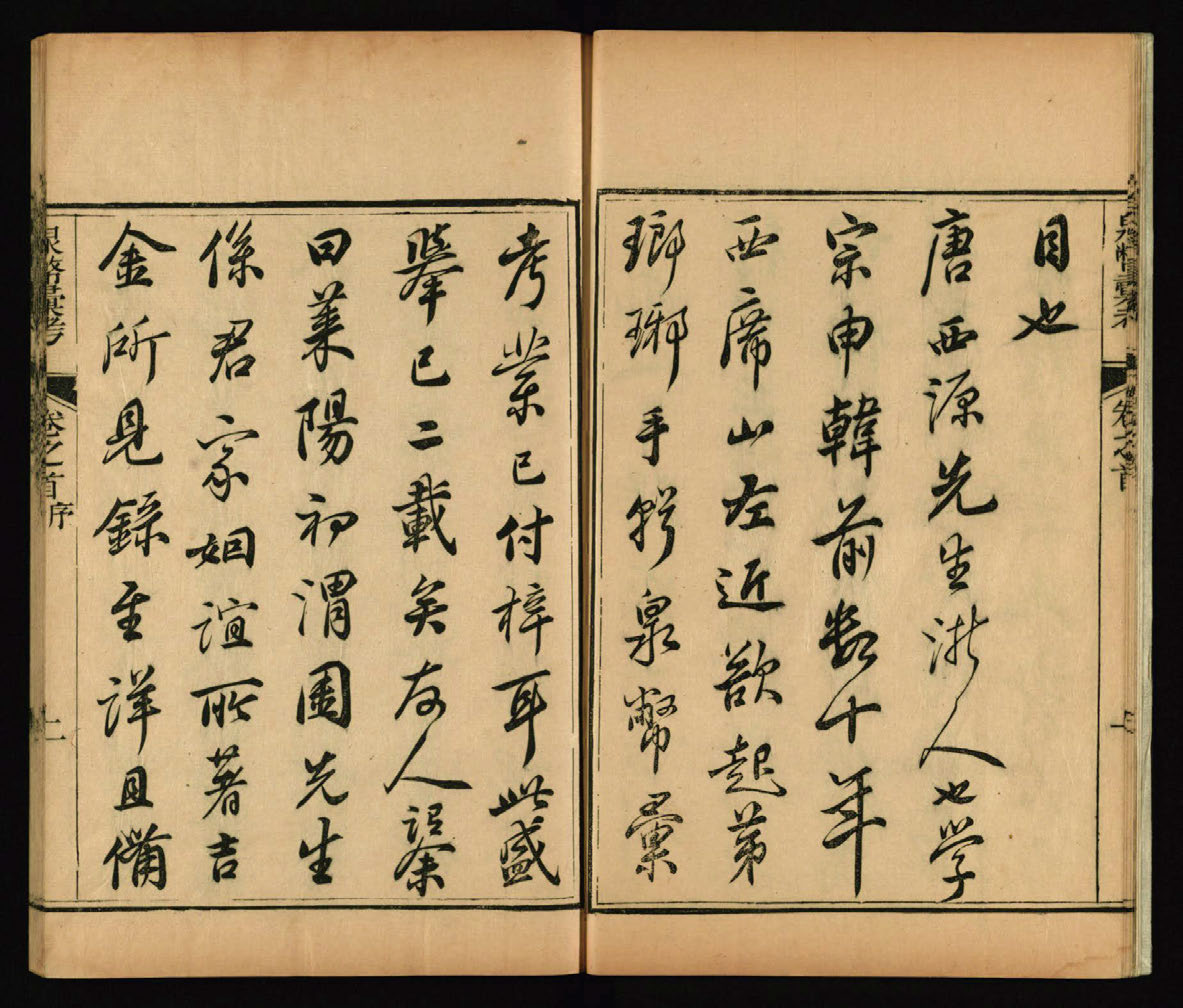 泉幣彙考 卷之首
目也
唐西源先生浙人也学
宗申韓前數十年
西席山左近欲起第
瑯琊手輯泉幣彙
考業已付梓耳此盛
舉已二載矣友人詔余
曰萊陽初渭園先生
係君家姻誼所著吉
金所見錄至詳且備
泉幣彙考 卷之首 序 二